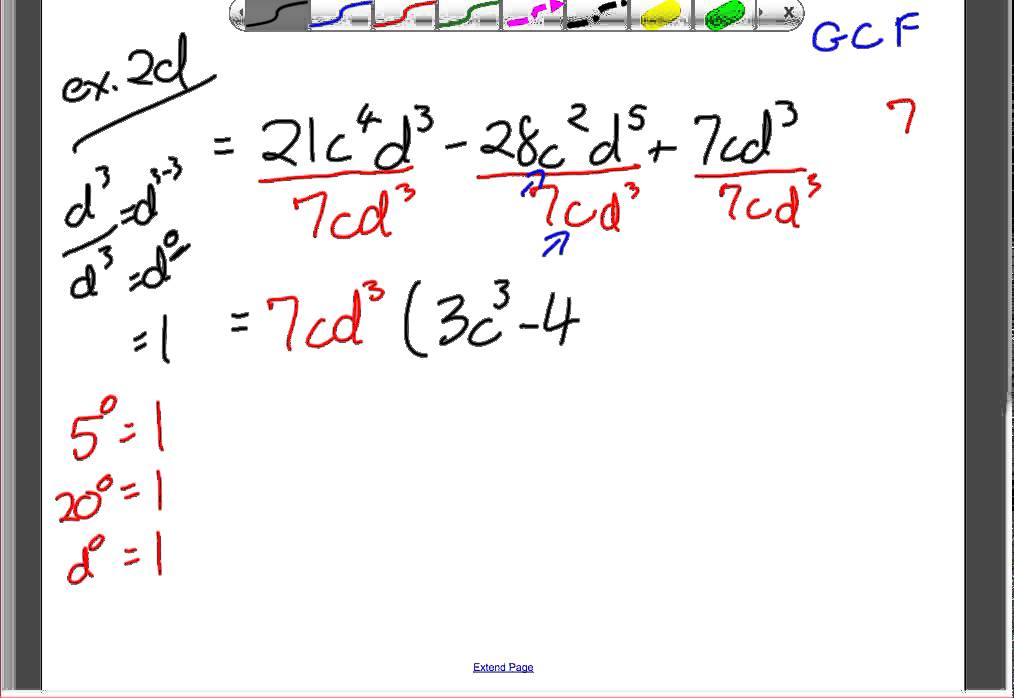 x
GCF
ex. 2d
= 21c⁴d³ - 28c²d⁵ + 7cd³
7
7cd³ 7cd³ 7cd³
d³
= d³⁻³
d³
= d⁰
= 1
= 7cd³ (3c³ - 4
5⁰ = 1
20⁰ = 1
d⁰ = 1
Extend Page